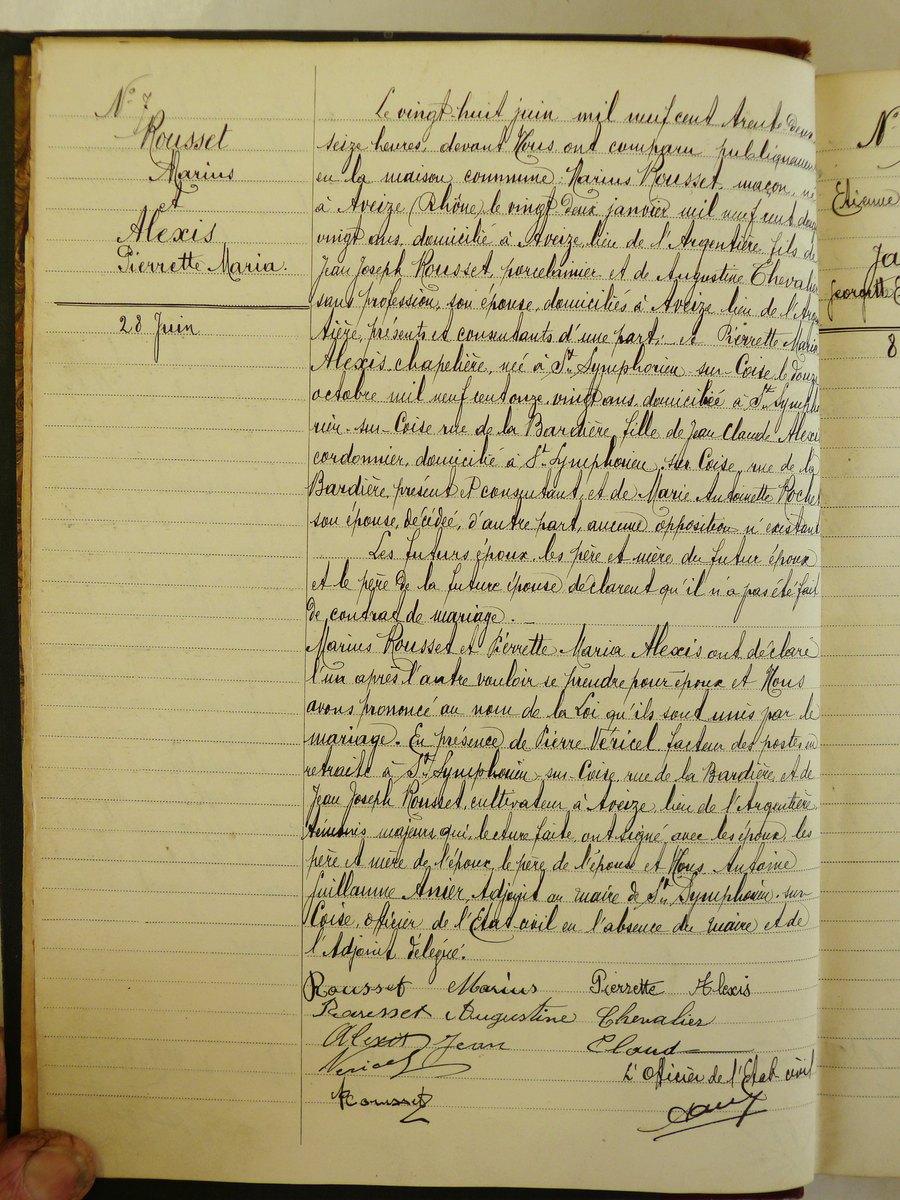 N° 7
Rousset
Marius
et
Alexis
Pierrette Maria.
28 Juin
Le vingt-huit juin mil neuf cent trente deux
seize heures, devant Nous ont comparu publiquement
en la maison commune: Marius Rousset, maçon, né
à Aveize (Rhône) le vingt deux janvier mil neuf cent douze
vingt ans, domicilié à Aveize, lieu de l'Argentière, fils de
Jean Joseph Rousset, porcelainier et de Augustine Chevalier
sans profession, son épouse, domiciliés à Aveize, lieu de l'Argen
tière, présents et consentants d'une part; et Pierrette Maria
Alexis chapelière, née à St Symphorien-sur-Coise le douze
octobre mil neuf cent onze, vingt ans, domiciliée à St Sympho
rien-sur-Coise rue de la Bardière, fille de Jean Claude Alexis
cordonnier, domicilié à St Symphorien-sur-Coise, rue de la
Bardière, présent et consentant, et de Marie Antoinette Roche
son épouse, décédée, d'autre part, aucune opposition n'existant
Les futurs époux, les père et mère du futur époux
et le père de la future épouse déclarent qu'il n'a pas été fait
de contrat de mariage.
Marius Rousset et Pierrette Maria Alexis ont déclaré
l'un après l'autre vouloir se prendre pour époux et Nous
avons prononcé au nom de la Loi qu'ils sont unis par le
mariage. En présence de Pierre Véricel, facteur des postes en
retraite à St Symphorien-sur-Coise, rue de la Bardière, et de
Jean Joseph Rousset, cultivateur à Aveize, lieu de l'Argentière
témoins majeurs, qui, lecture faite, ont signé avec les époux, les
père et mère de l'époux, le père de l'épouse et Nous Antoine
Guillaume Anier Adjoint au maire de St Symphorien-sur-
Coise, officier de l'Etat civil en l'absence du maire et de
l'Adjoint délégué.
Rousset Marius Pierrette Alexis
Augustine Chevalier
Alexis Jean Claud
Vericel
L'Officier de l'Etat civil
Rousset
N°
Etienne
Ja
Georgette
8